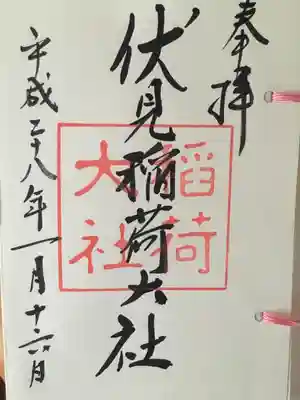 奉拝
伏見稲荷大社
稲荷
大社
平成二十八年一月十六日